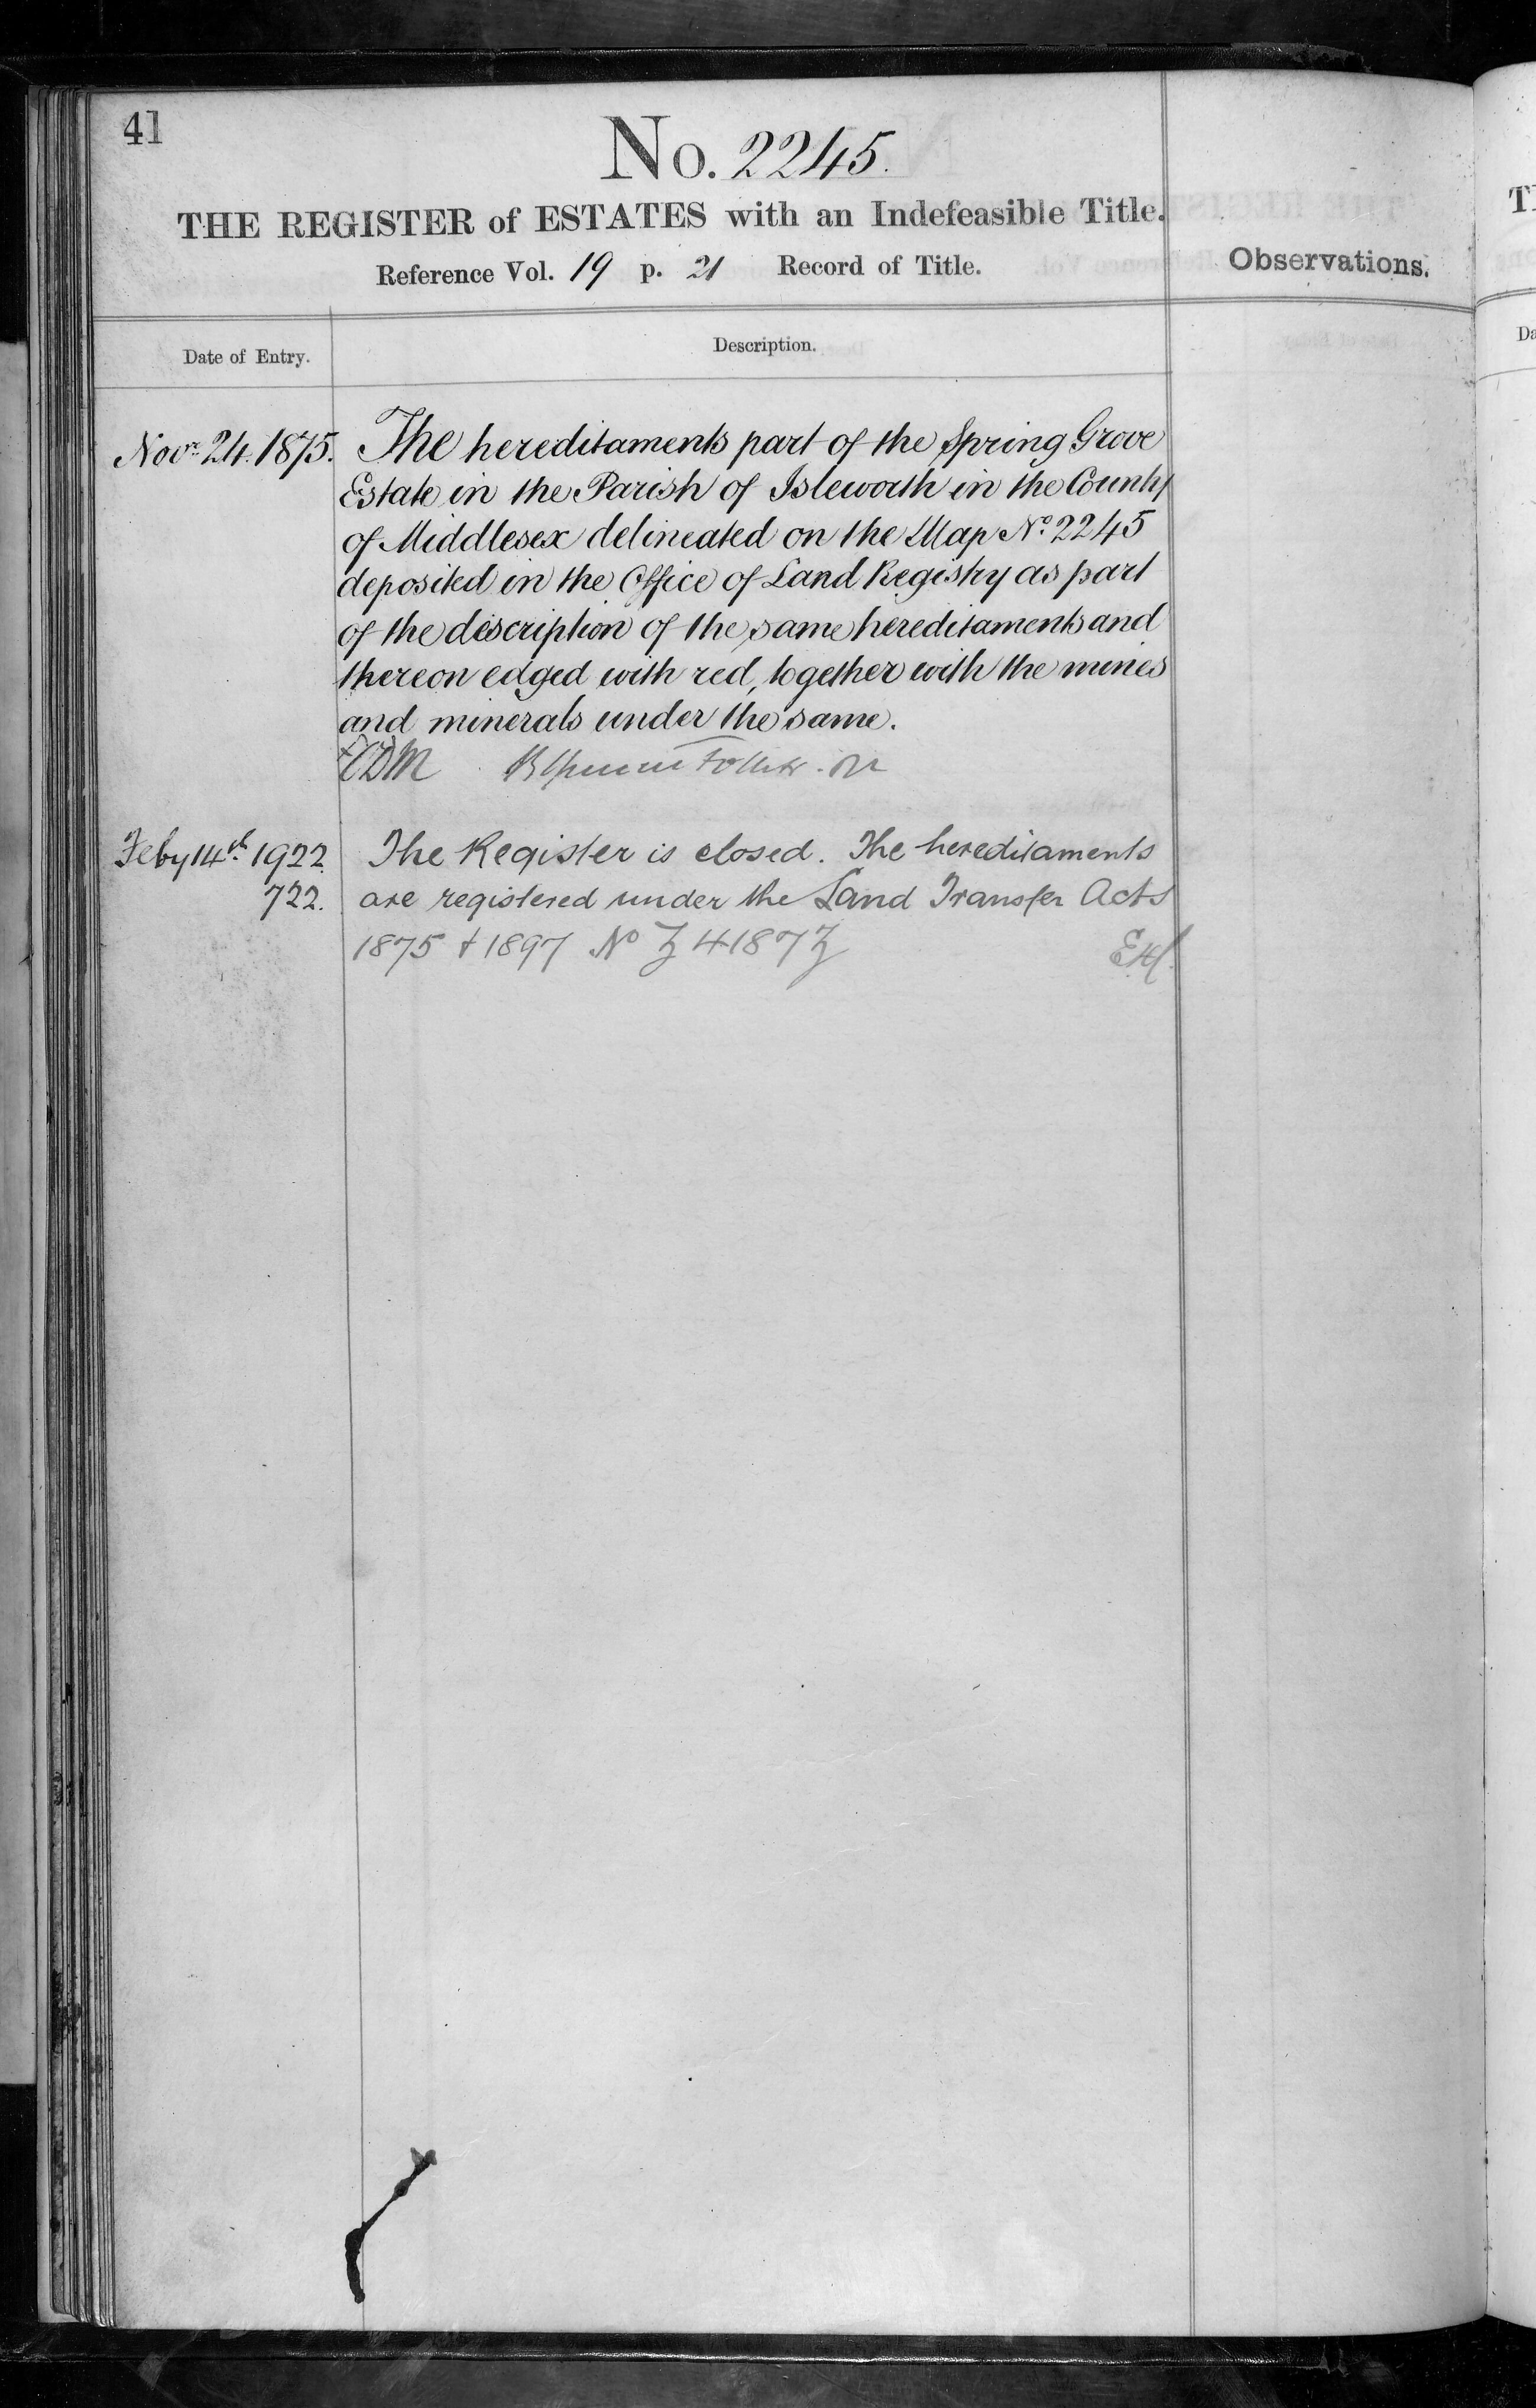 41
No. 2245.
THE REGISTER of ESTATES with an Indefeasible Title.
Reference Vol. 19 p. 21 Record of Title.
Observations.
Date of Entry.
Description.
Novr. 24. 1875.
The hereditaments part of the Spring Grove
Estate in the Parish of Isleworth in the County
of Middlesex delineated on the Map No. 2245
deposited in the Office of Land Registry as part
of the description of the same hereditaments and
thereon edged with red, together with the mines
and minerals under the same.
Feby 14th. 1922.
722.
The Register is closed. The hereditaments
are registered under the Land Transfer Acts
1875 & 1897 No